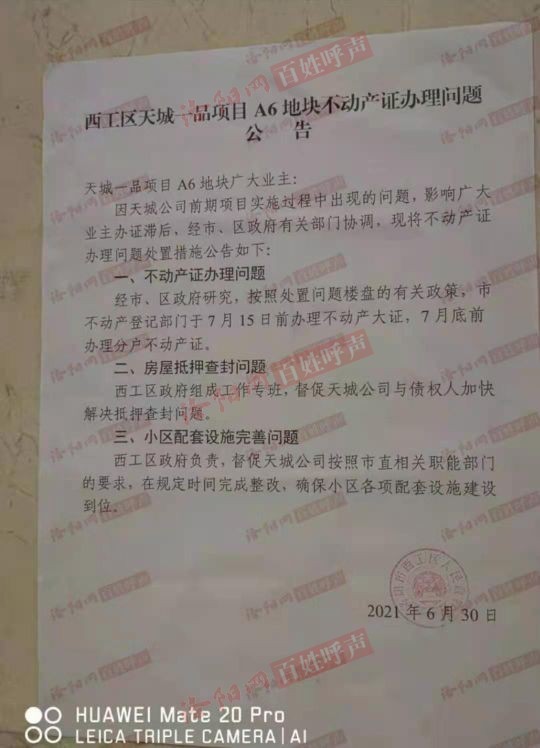 西工区天城一品项目 A6 地块不动产证办理问题
公 告
天城一品项目 A6 地块广大业主：
因天城公司前期项目实施过程中出现的问题，影响广大
业主办证滞后，经市、区政府有关部门协调，现将不动产证
办理问题处置措施公告如下：
一、不动产证办理问题
经市、区政府研究，按照处置问题楼盘的有关政策，市
不动产登记部门于 7 月 15 日前办理不动产大证，7 月底前
办理分户不动产证。
二、房屋抵押查封问题
西工区政府组成工作专班，督促天城公司与债权人加快
解决抵押查封问题。
三、小区配套设施完善问题
西工区政府负责，督促天城公司按照市直相关职能部门
的要求，在规定时间完成整改，确保小区各项配套设施建设
到位。
2021 年 6 月 30 日
洛阳网 百姓呼声
HUAWEI Mate 20 Pro
LEICA TRIPLE CAMERA | AI